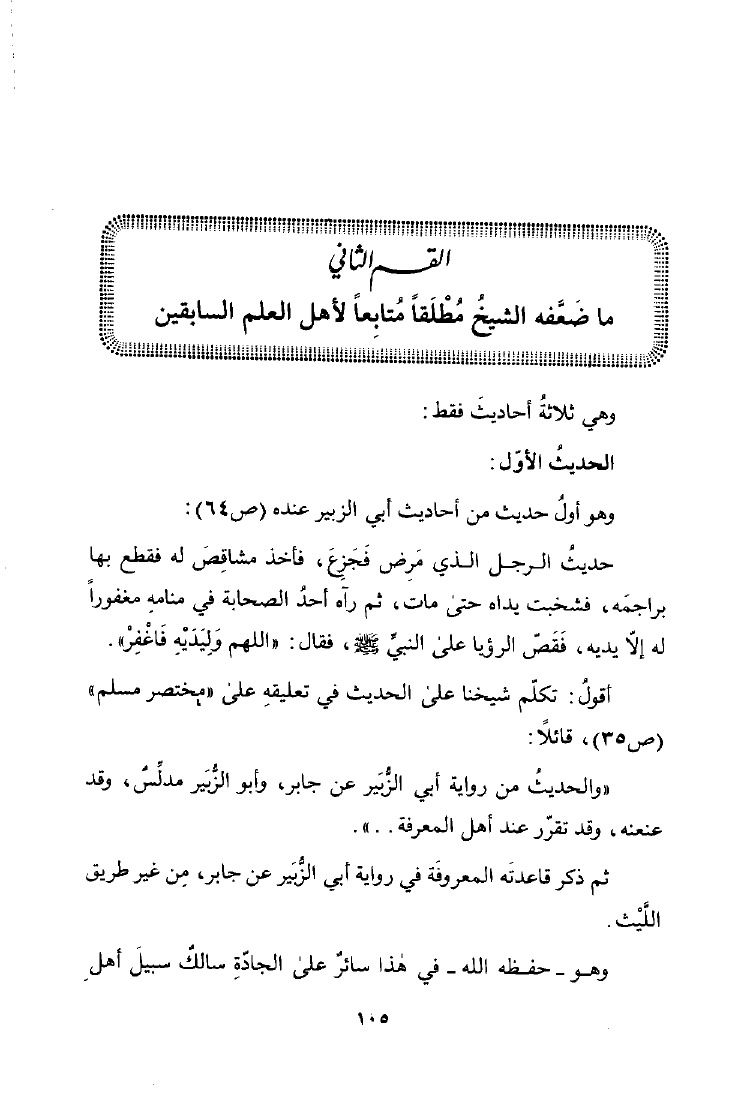 القسم الثاني
ما ضَعَّفه الشيخُ مُطْلَقاً مُتابِعاً لأهل العلم السابقين
وهي ثلاثةُ أحاديثَ فقط:
الحديثُ الأوّل:
وهو أولُ حديث من أحاديث أبي الزبير عنده (ص٦٤):
حديثُ الرجل الذي مَرِض فَجَزِعَ، فأخذ مشاقِصَ له فقطع بها
براجمَه، فشخبت يداه حتىٰ مات، ثم رآه أحدُ الصحابة في منامهِ مغفوراً
له إلّا يديه، فَقَصّ الرؤيا علىٰ النبيِّ ﷺ، فقال: «اللهم وَلِيَدَيْهِ فَاغْفِرْ».
أقولُ: تكلّم شيخنا علىٰ الحديث في تعليقهِ علىٰ «مختصر مسلم»
(ص٣٥)، قائلًا:
«والحديثُ من رواية أبي الزُّبَير عن جابر، وأبو الزُّبَير مدلِّسٌ، وقد
عنعنه، وقد تقرّر عند أهل المعرفة . . .».
ثم ذكر قاعدتَه المعروفَة في رواية أبي الزُّبَير عن جابر، مِن غير طريق
اللَّيْث.
وهـو ـ حفـظه الله ـ في هٰذا سائرٌ علىٰ الجادّةِ سالكٌ سبيلَ أهلِ
١٠٥